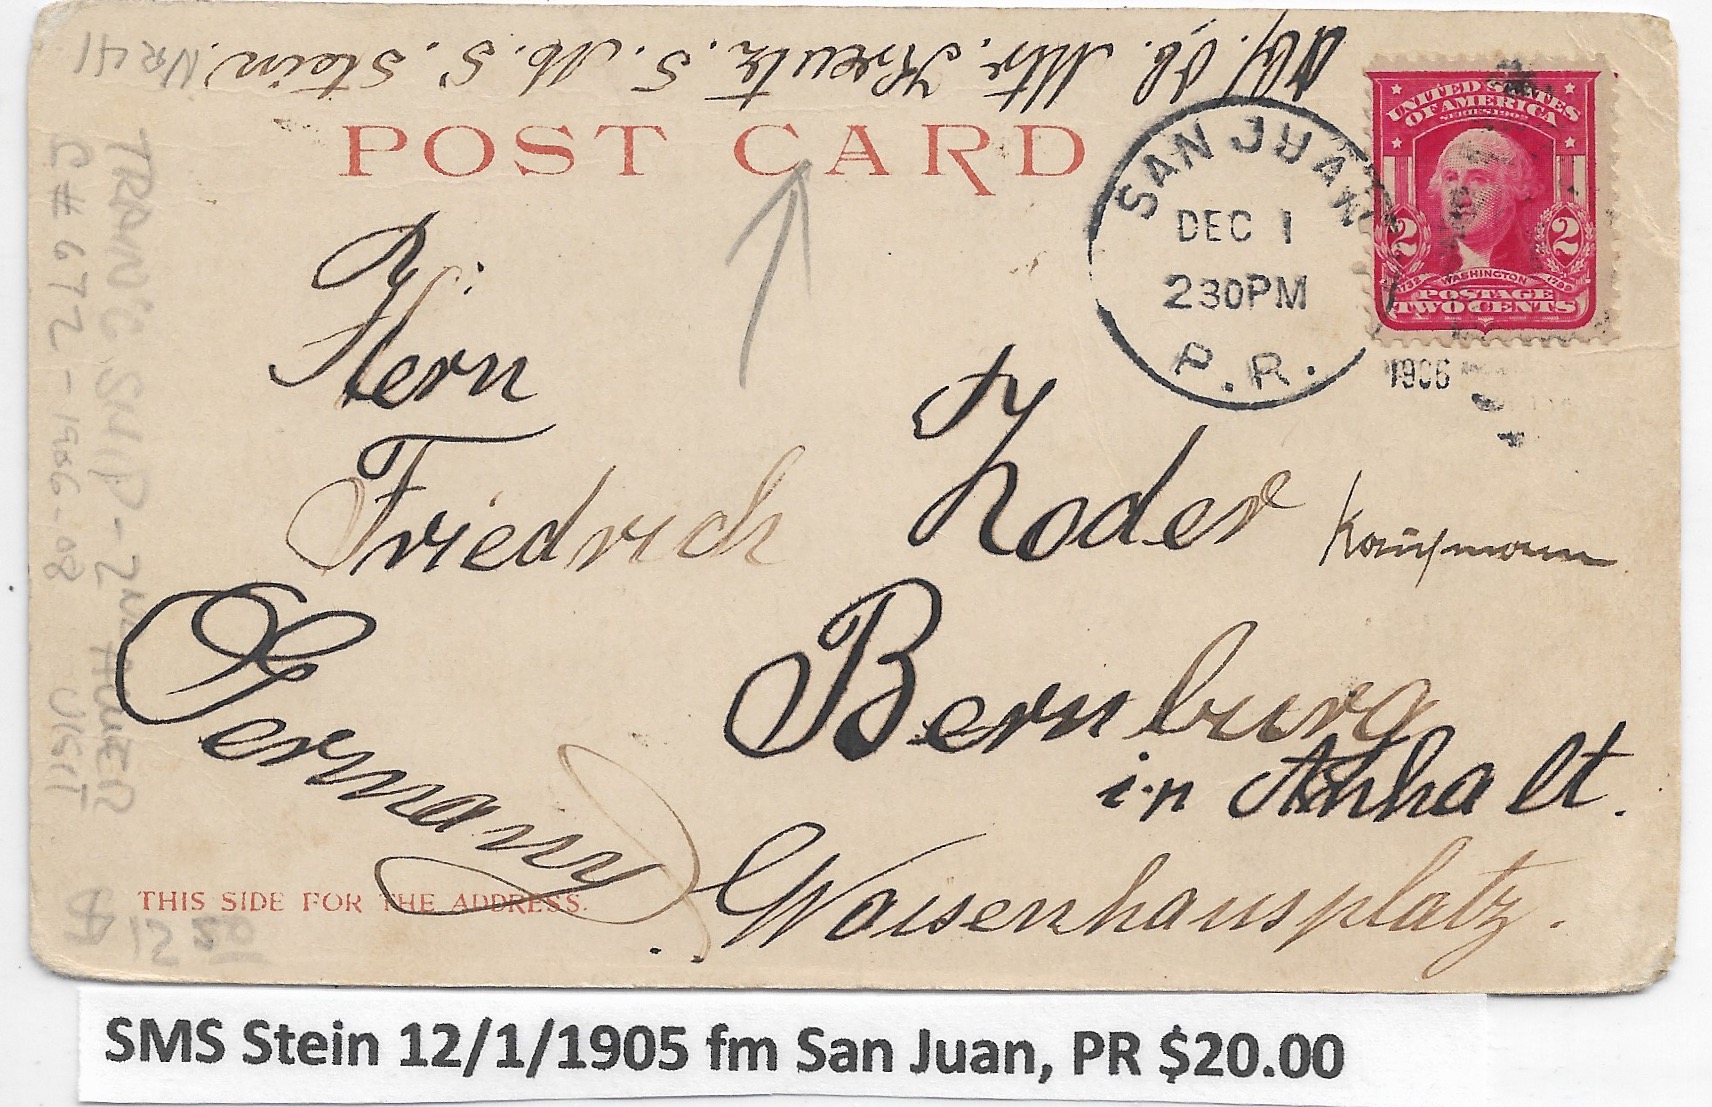 Mtr. Kreutz. S. M. S. Stein.
POST CARD
SAN JUAN
DEC 1
230PM
P. R.
1906
UNITED STATES
OF AMERICA
SERIES 1902
2 2
1732 WASHINGTON 1799
POSTAGE
TWO CENTS
Herrn
Friedrich Zoder Kaufmann
Bernburg
in Anhalt.
Waisenhausplatz.
Germany
THIS SIDE FOR THE ADDRESS.
NR 41
C# 672 - 1906-08 VISIT
SMS Stein 12/1/1905 fm San Juan, PR $20.00